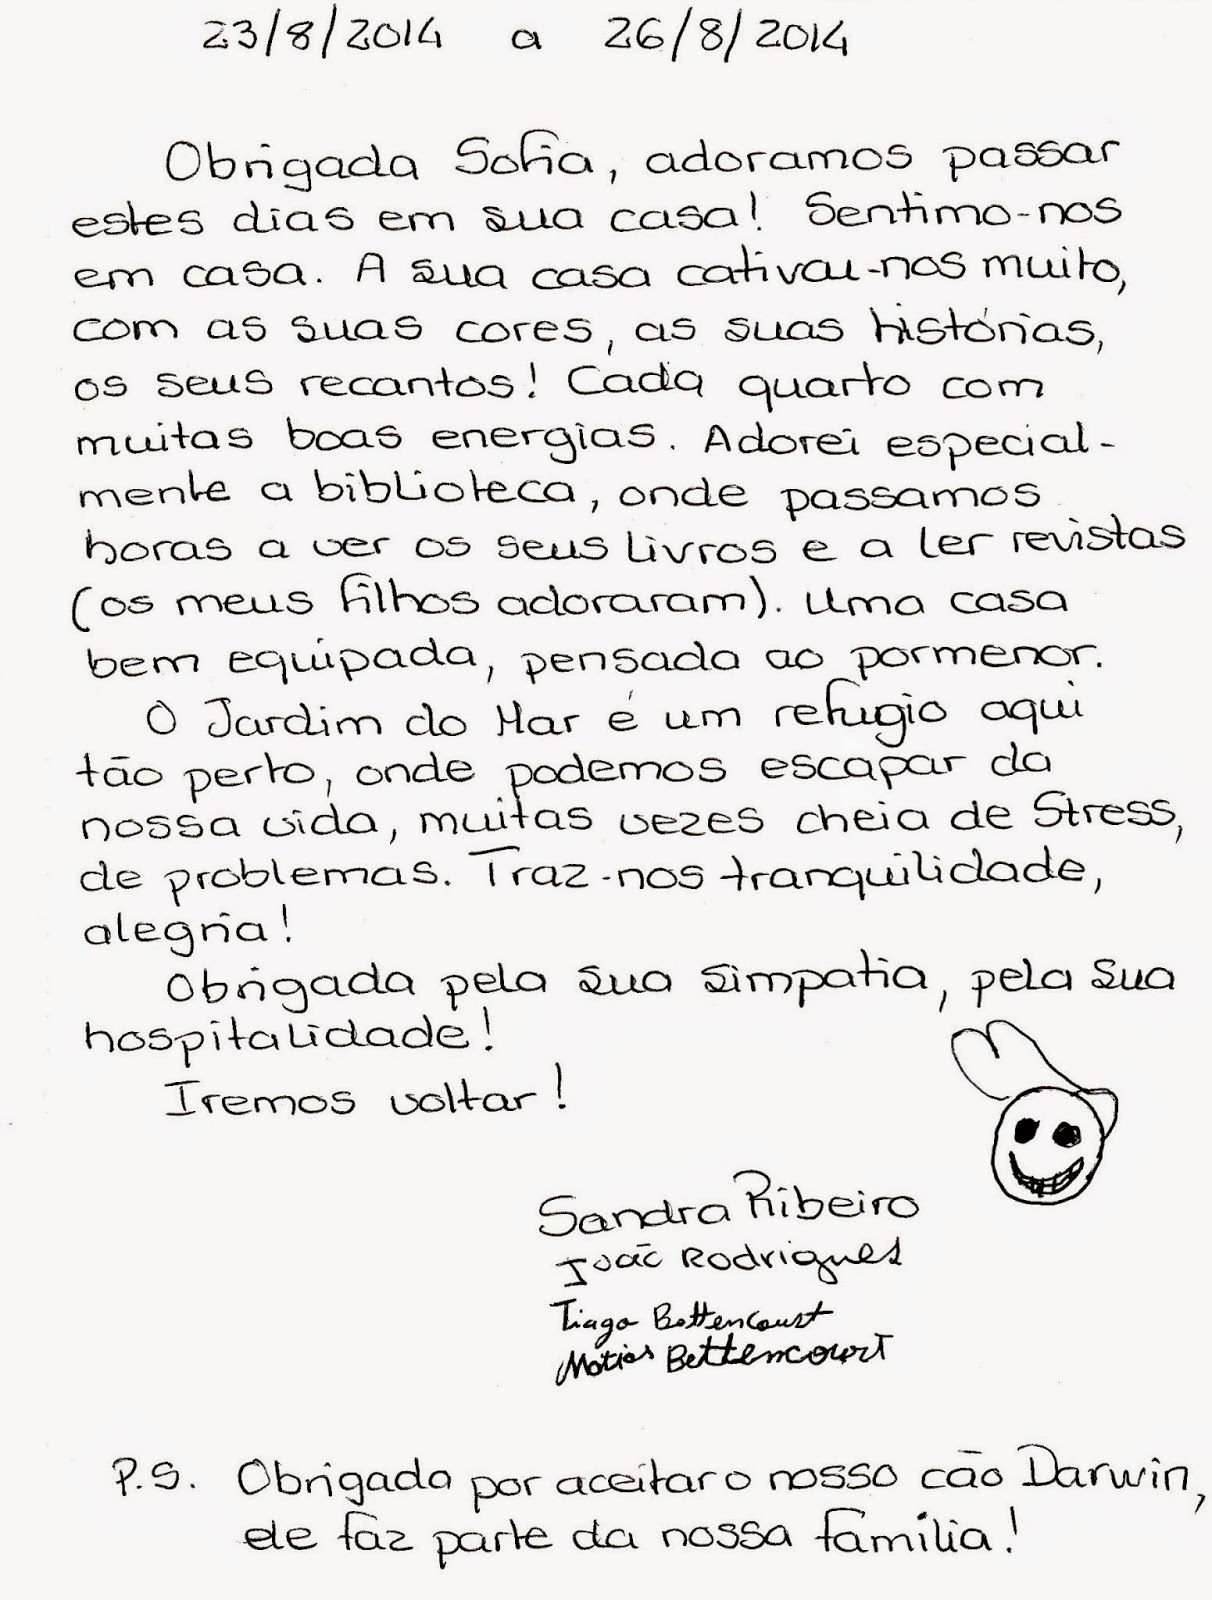 23/8/2014 a 26/8/2014
Obrigada Sofia, adoramos passar
estes dias em sua casa! Sentimo-nos
em casa. A sua casa cativou-nos muito,
com as suas cores, as suas histórias,
os seus recantos! Cada quarto com
muitas boas energias. Adorei especial-
mente a biblioteca, onde passamos
horas a ver os seus livros e a ler revistas
(os meus filhos adoraram). Uma casa
bem equipada, pensada ao pormenor.
O Jardim do Mar é um refugio aqui
tão perto, onde podemos escapar da
nossa vida, muitas vezes cheia de Stress,
de problemas. Traz-nos tranquilidade,
alegria!
Obrigada pela sua simpatia, pela sua
hospitalidade!
Iremos voltar!
Sandra Ribeiro
João Rodrigues
Tiago Bettencourt
Matias Bettencourt
P.S. Obrigada por aceitar o nosso cão Darwin,
ele faz parte da nossa família!